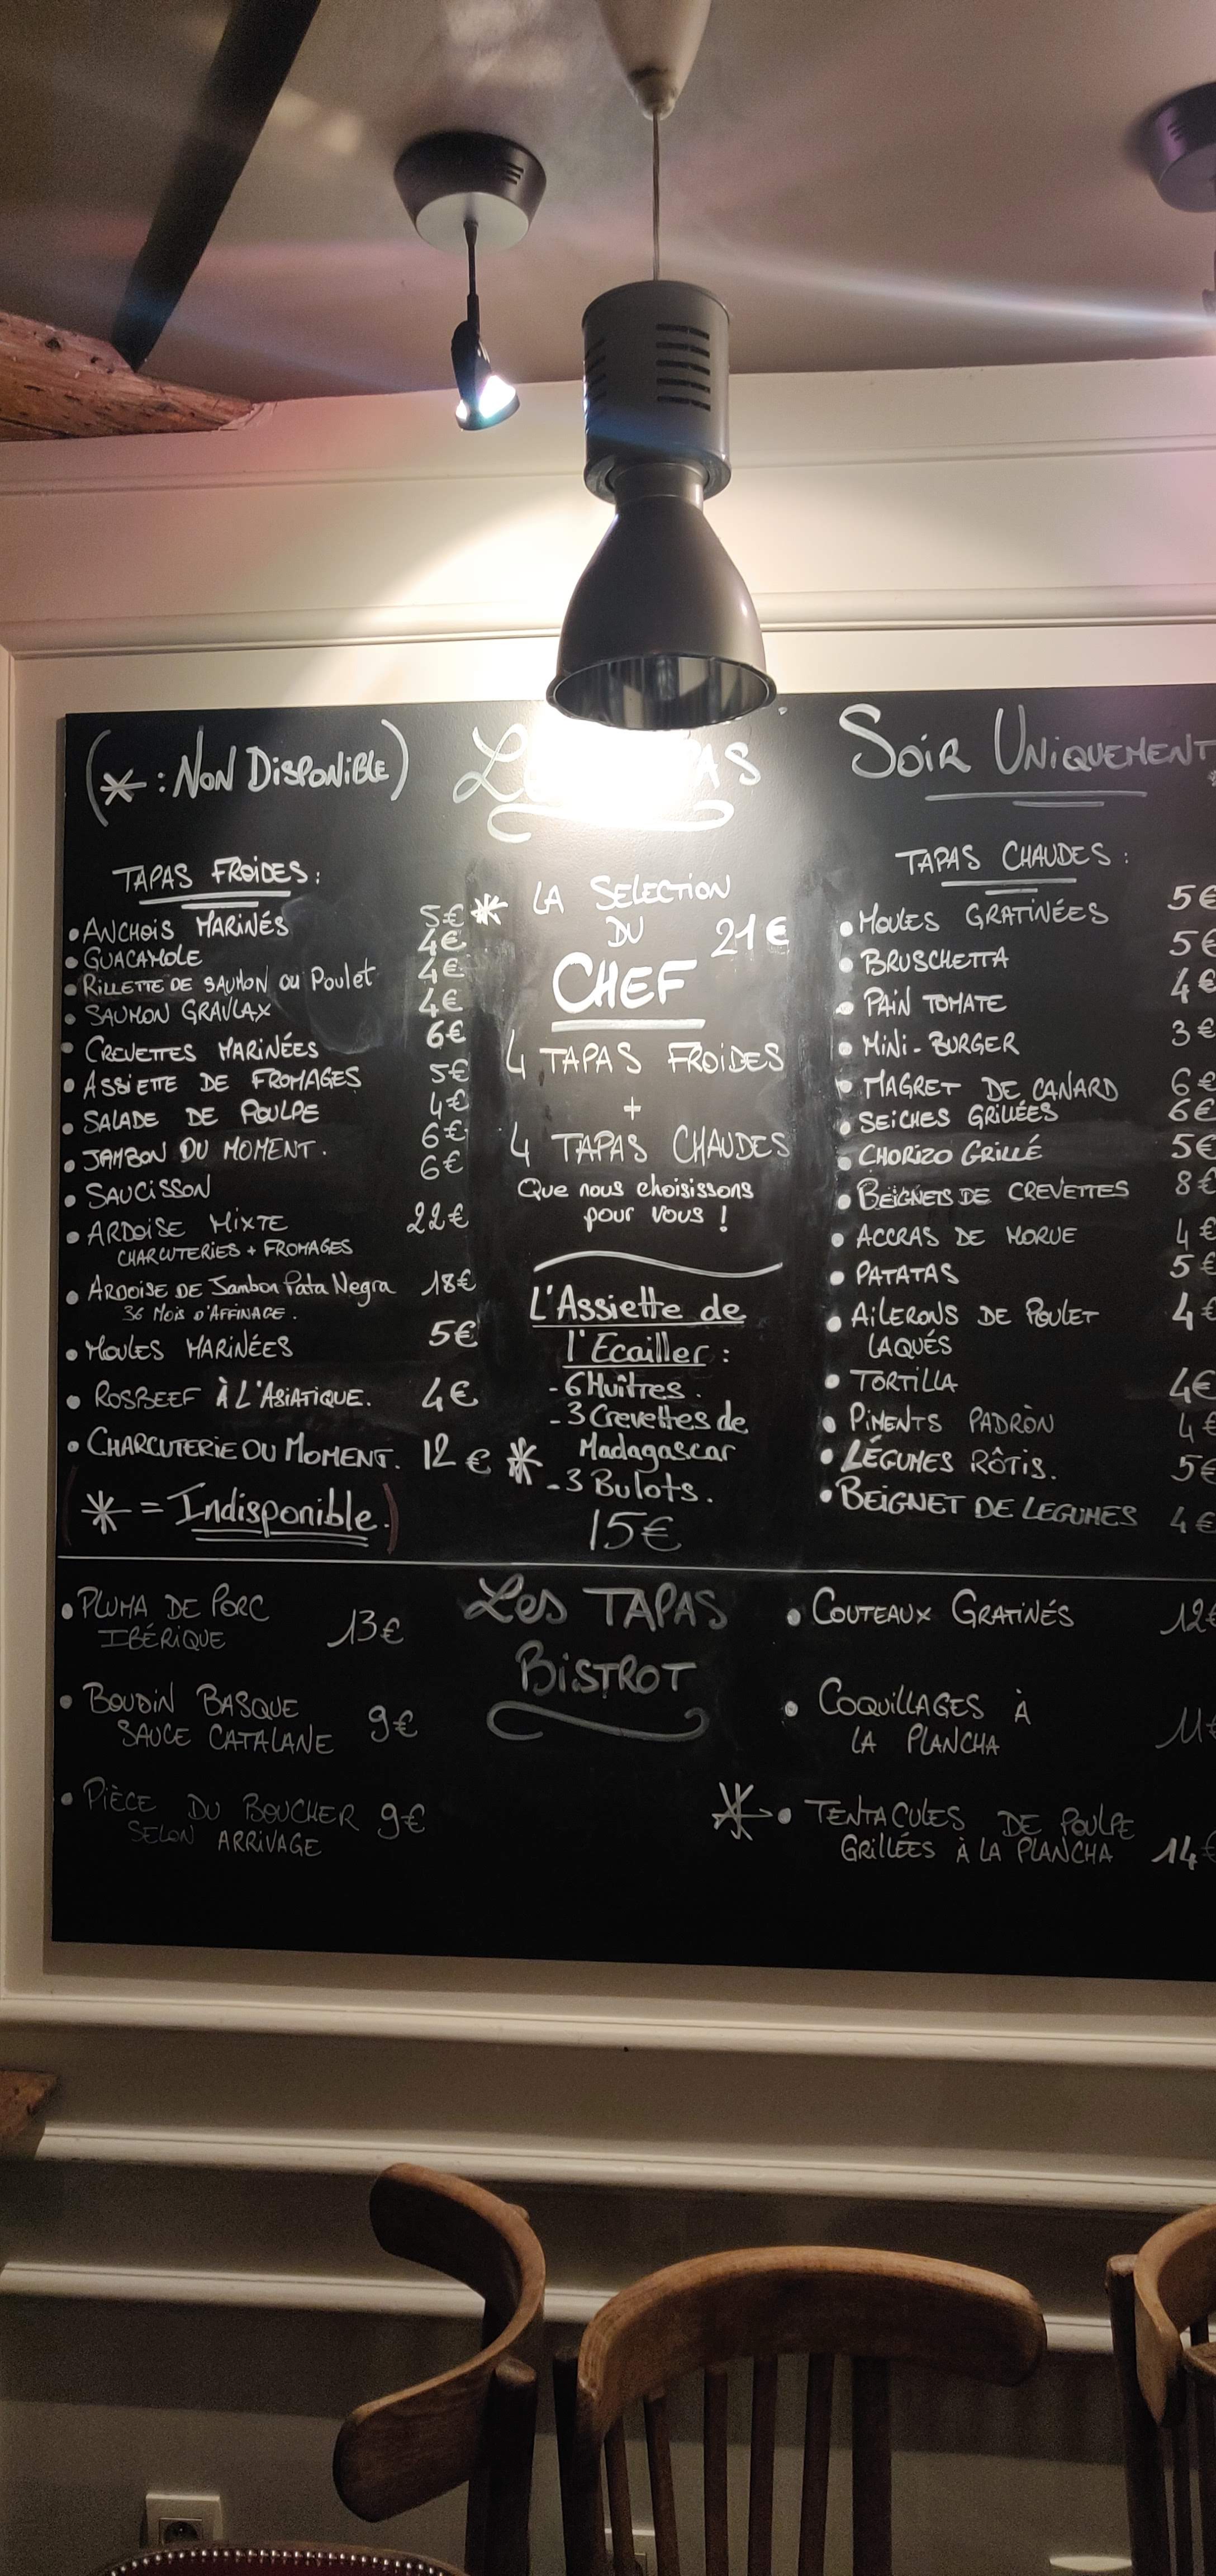 (* : NON DISPONIBLE)
SOIR UNIQUEMENT
TAPAS FROIDES :
• ANCHOIS MARINÉS 5€
• GUACAMOLE 4€
• RILLETTE DE SAUMON ou Poulet 4€
• SAUMON GRAVLAX 4€
• CREVETTES MARINÉES 6€
• ASSIETTE DE FROMAGES 5€
• SALADE DE POULPE 4€
• JAMBON DU MOMENT. 6€
• SAUCISSON 6€
• ARDOISE MIXTE 22€
CHARCUTERIES + FROMAGES
• ARDOISE DE Jambon Pata Negra 18€
36 MOIS D'AFFINAGE.
• MOULES MARINÉES 5€
• ROSBEEF À L'ASIATIQUE. 4€
• CHARCUTERIE DU MOMENT. 12€
(* = Indisponible.)
* LA SELECTION
DU 21€
CHEF
4 TAPAS FROIDES
+
4 TAPAS CHAUDES
Que nous choisissons
pour vous !
L'Assiette de
l'Ecailler :
- 6 Huîtres.
- 3 Crevettes de
* Madagascar
- 3 Bulots.
15€
TAPAS CHAUDES :
• MOULES GRATINÉES 5€
• BRUSCHETTA 5€
• PAIN TOMATE 4€
• MINI-BURGER 3€
• MAGRET DE CANARD 6€
• SEICHES GRILLÉES 6€
• CHORIZO GRILLÉ 5€
• BEIGNETS DE CREVETTES 8€
• ACCRAS DE MORUE 4€
• PATATAS 5€
• AILERONS DE POULET 4€
LAQUÉS
• TORTILLA 4€
• PIMENTS PADRÒN 4€
• LÉGUMES RÔTIS. 5€
• BEIGNET DE LEGUMES 4€
Les TAPAS
BISTROT
• PLUMA DE PORC 13€
IBÉRIQUE
• BOUDIN BASQUE 9€
SAUCE CATALANE
• PIÈCE DU BOUCHER 9€
SELON ARRIVAGE
• COUTEAUX GRATINÉS 12€
• COQUILLAGES À 11€
LA PLANCHA
* • TENTACULES DE POULPE
GRILLÉES À LA PLANCHA 14€